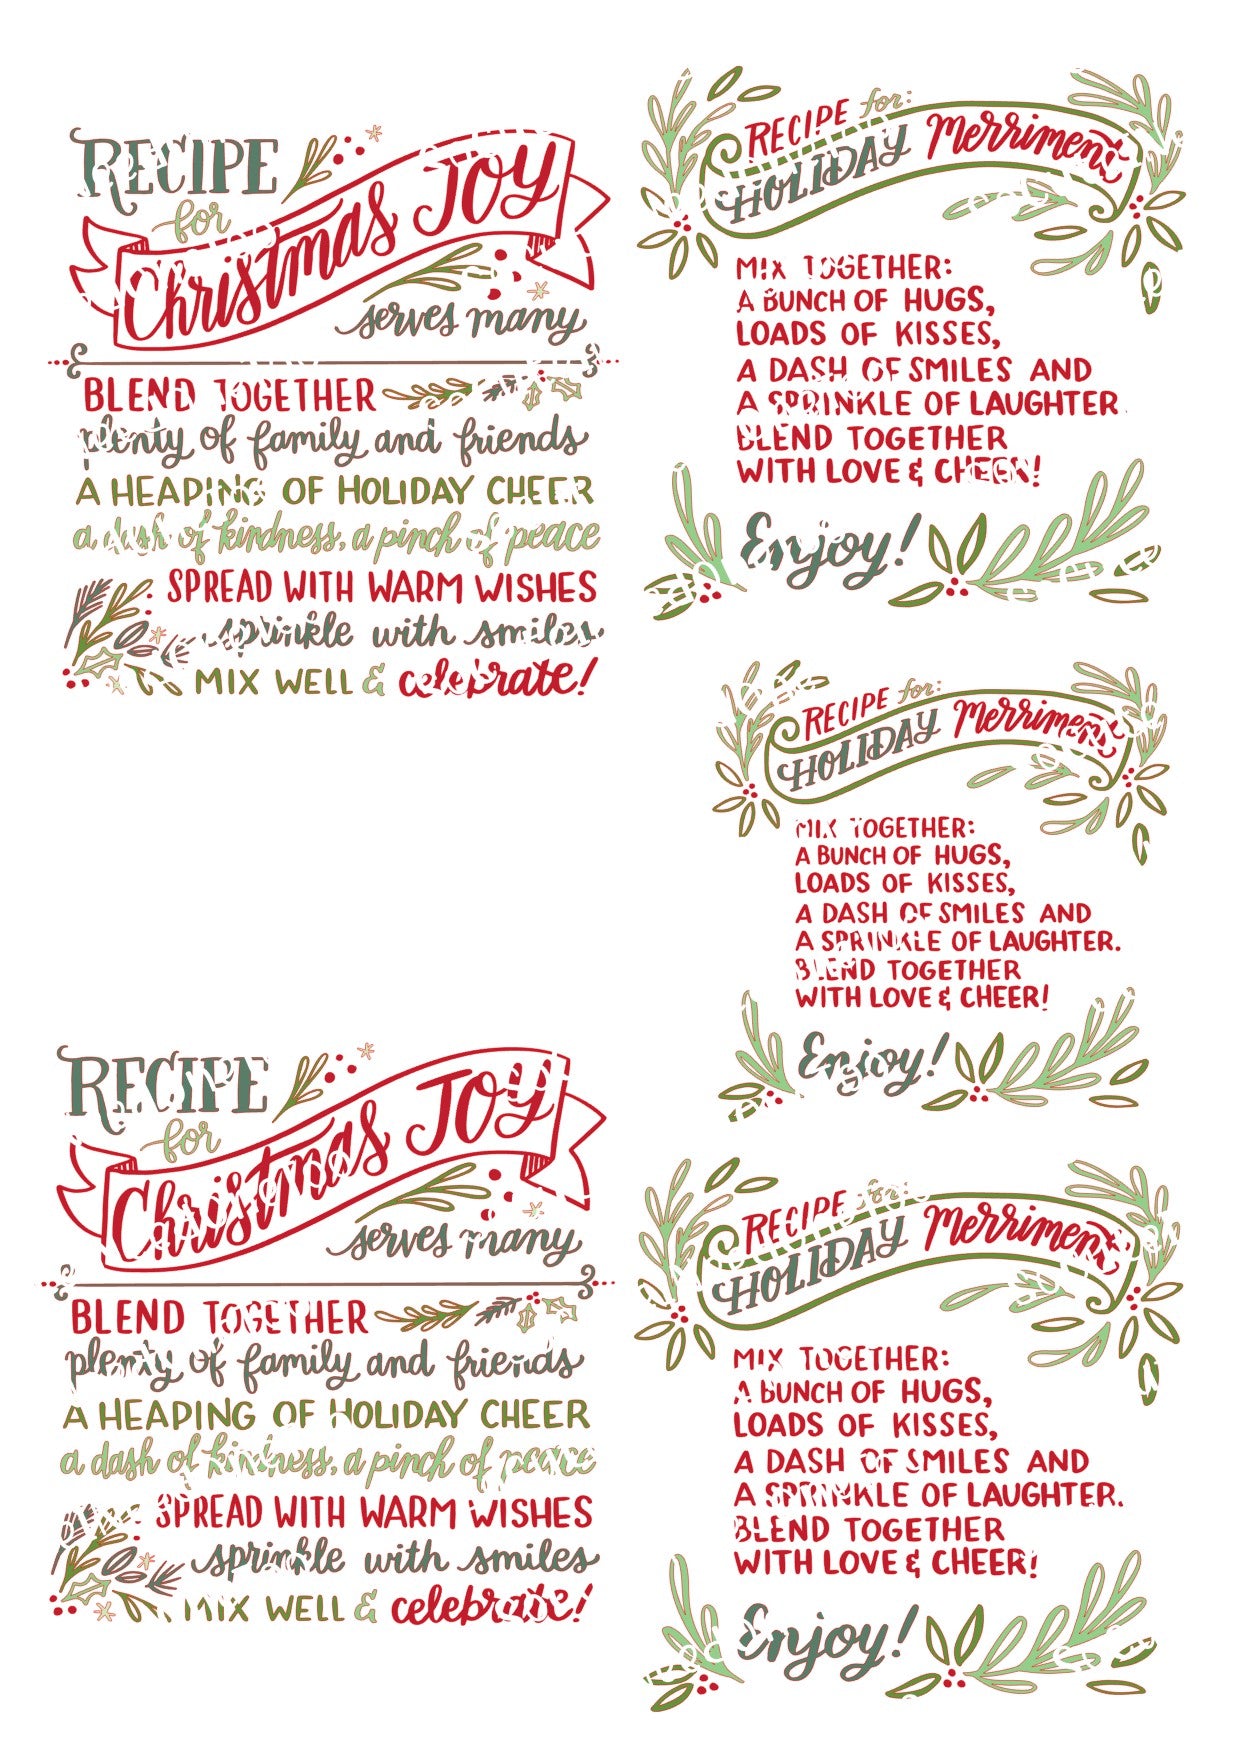 RECIPE
for
Christmas JOY
serves many
BLEND TOGETHER
plenty of family and friends
A HEAPING OF HOLIDAY CHEER
a dash of kindness, a pinch of peace
SPREAD WITH WARM WISHES
sprinkle with smiles
MIX WELL & celebrate!
RECIPE
for
Christmas JOY
serves many
BLEND TOGETHER
plenty of family and friends
A HEAPING OF HOLIDAY CHEER
a dash of kindness, a pinch of peace
SPREAD WITH WARM WISHES
sprinkle with smiles
MIX WELL & celebrate!
RECIPE for:
HOLIDAY Merriment
MIX TOGETHER:
A BUNCH OF HUGS,
LOADS OF KISSES,
A DASH OF SMILES AND
A SPRINKLE OF LAUGHTER.
BLEND TOGETHER
WITH LOVE & CHEER!
Enjoy!
RECIPE for:
HOLIDAY Merriment
MIX TOGETHER:
A BUNCH OF HUGS,
LOADS OF KISSES,
A DASH OF SMILES AND
A SPRINKLE OF LAUGHTER.
BLEND TOGETHER
WITH LOVE & CHEER!
Enjoy!
RECIPE for:
HOLIDAY Merriment
MIX TOGETHER:
A BUNCH OF HUGS,
LOADS OF KISSES,
A DASH OF SMILES AND
A SPRINKLE OF LAUGHTER.
BLEND TOGETHER
WITH LOVE & CHEER!
Enjoy!